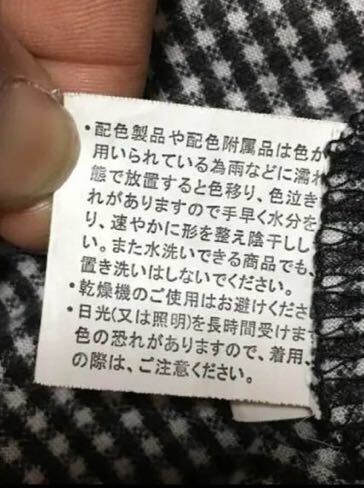 ・配色製品や配色附属品は色が
用いられている為雨などに濡れ
態で放置すると色移り、色泣き
れがありますので手早く水分を
り、速やかに形を整え陰干しし
い。また水洗いできる商品でも、
置き洗いはしないでください。
・乾燥機のご使用はお避けくださ
・日光(又は照明)を長時間受けま
色の恐れがありますので、着用、
の際は、ご注意ください。